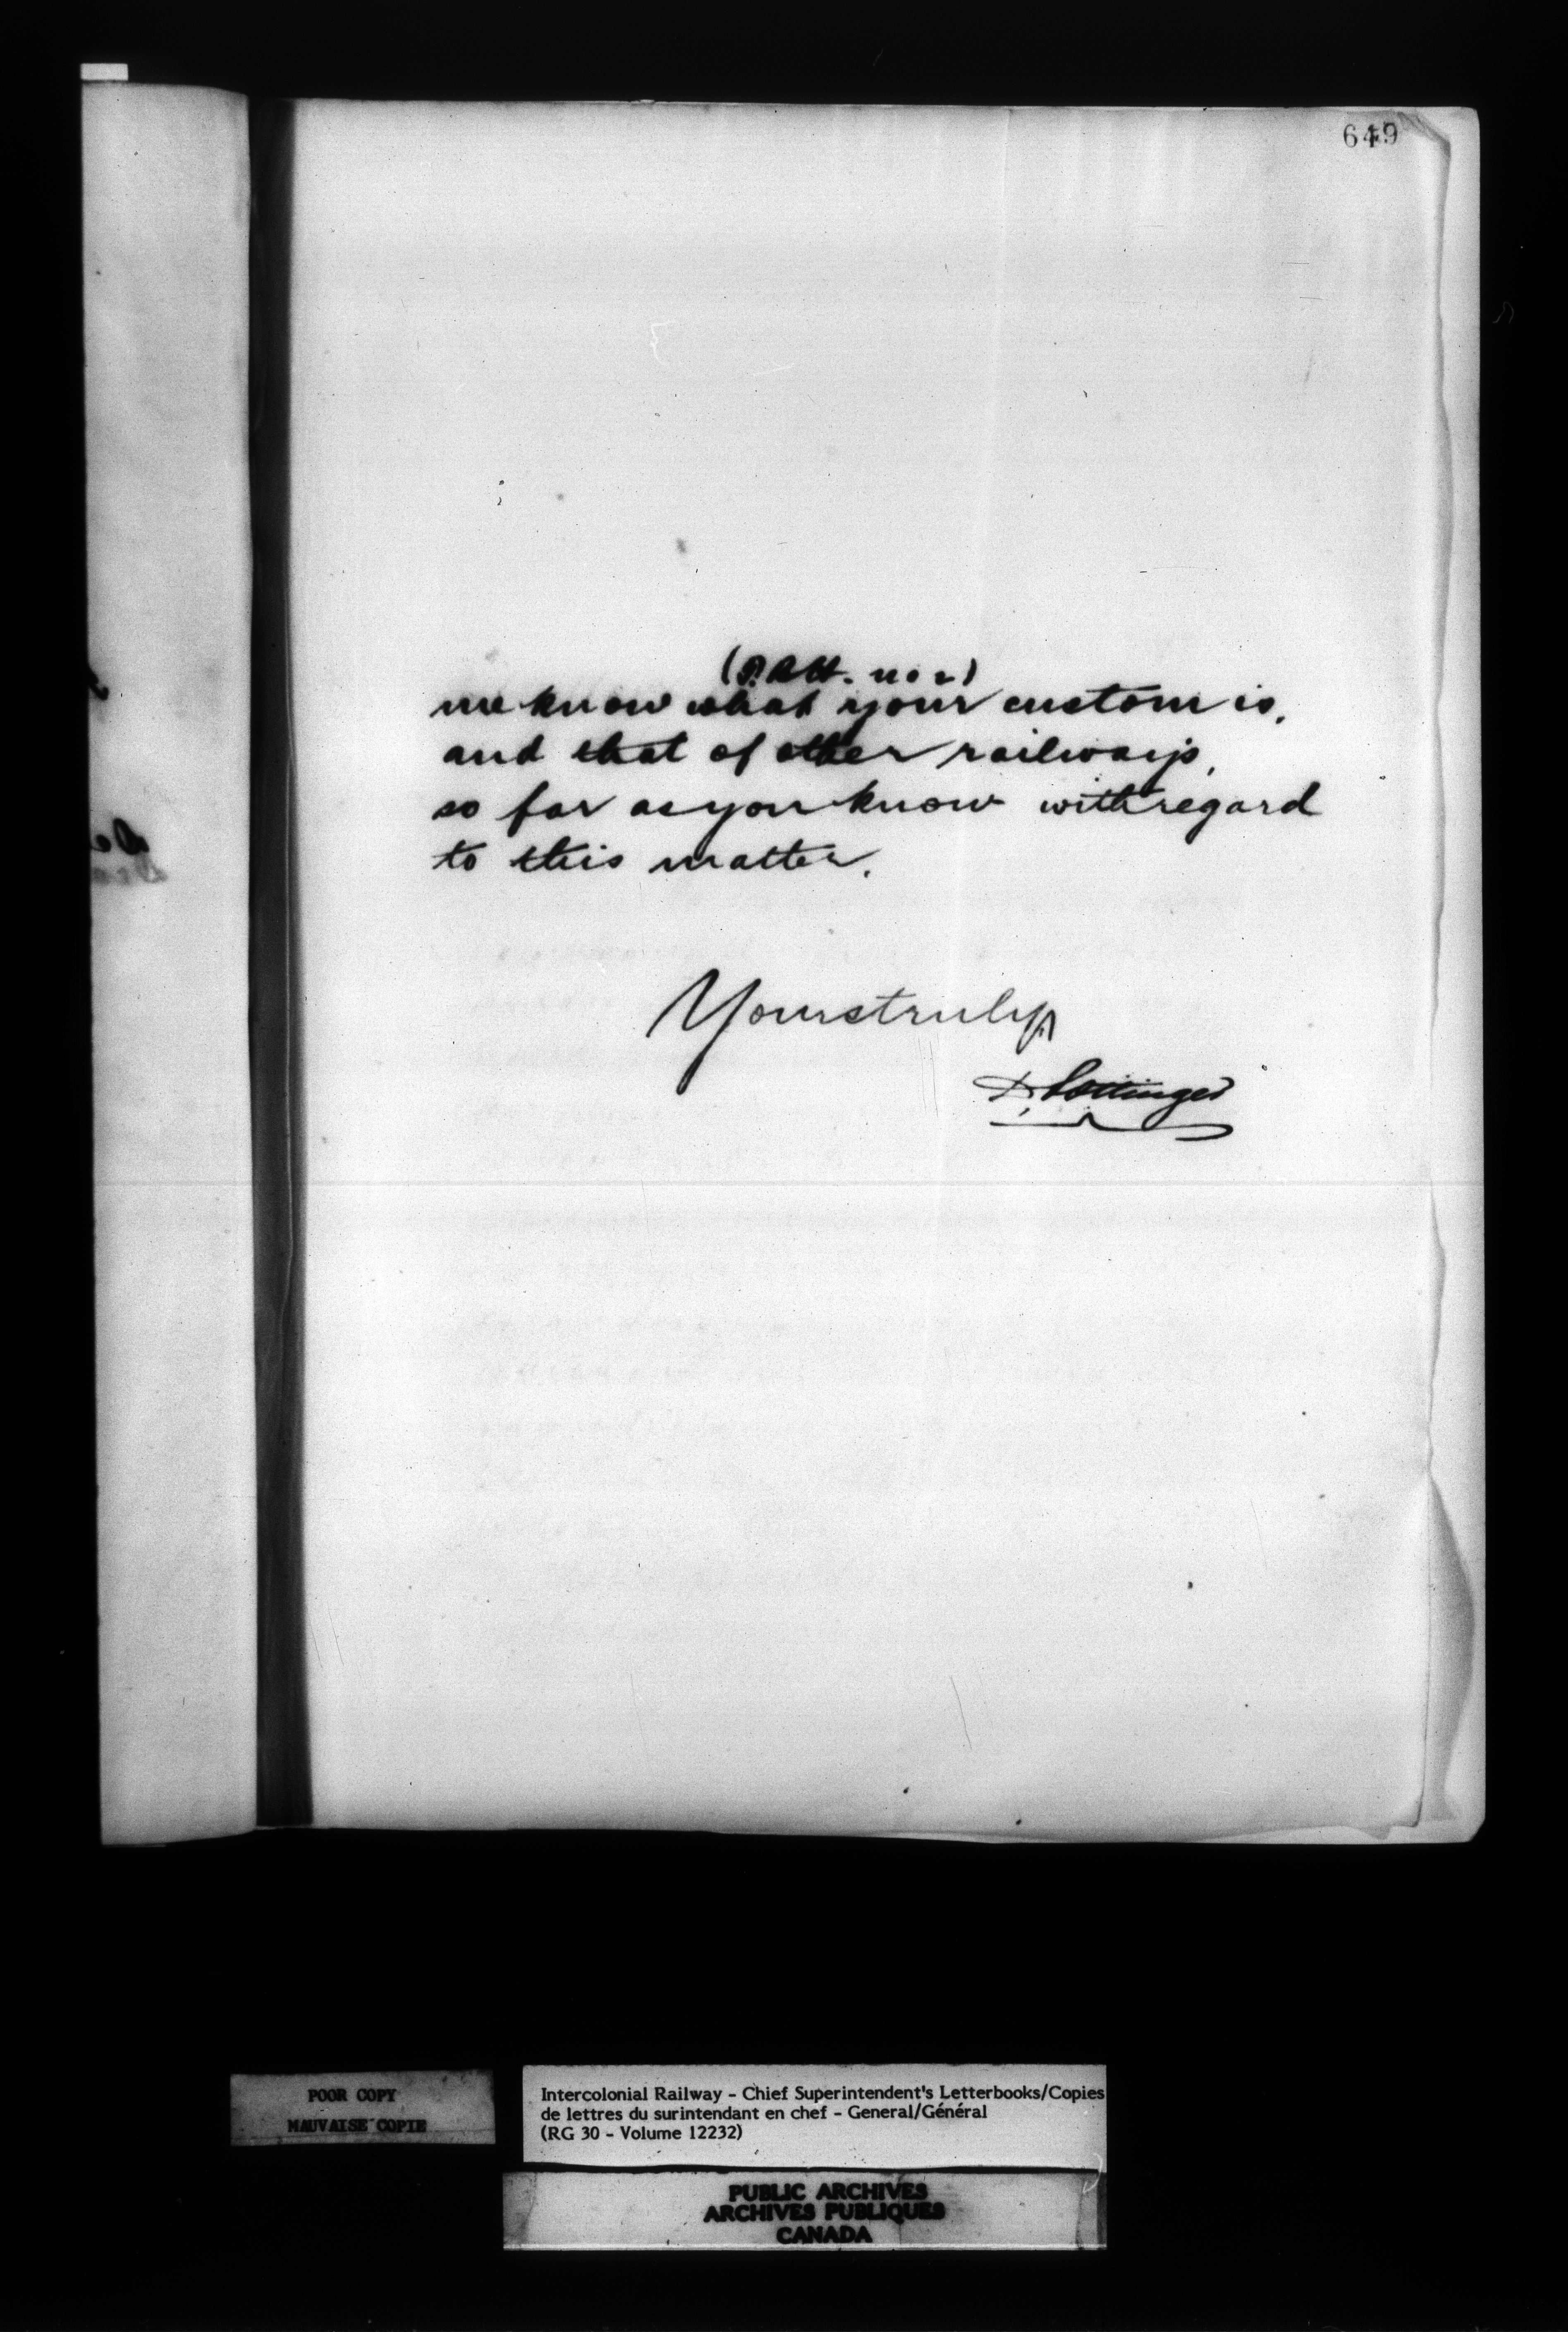 649
me know what your custom is,
and that of other railways,
so far as you know with regard
to this matter.
Yours truly
D. Pottinger
POOR COPY
MAUVAISE COPIE
Intercolonial Railway - Chief Superintendent's Letterbooks/Copies
de lettres du surintendant en chef - General/Général
(RG 30 - Volume 12232)
PUBLIC ARCHIVES
ARCHIVES PUBLIQUES
CANADA